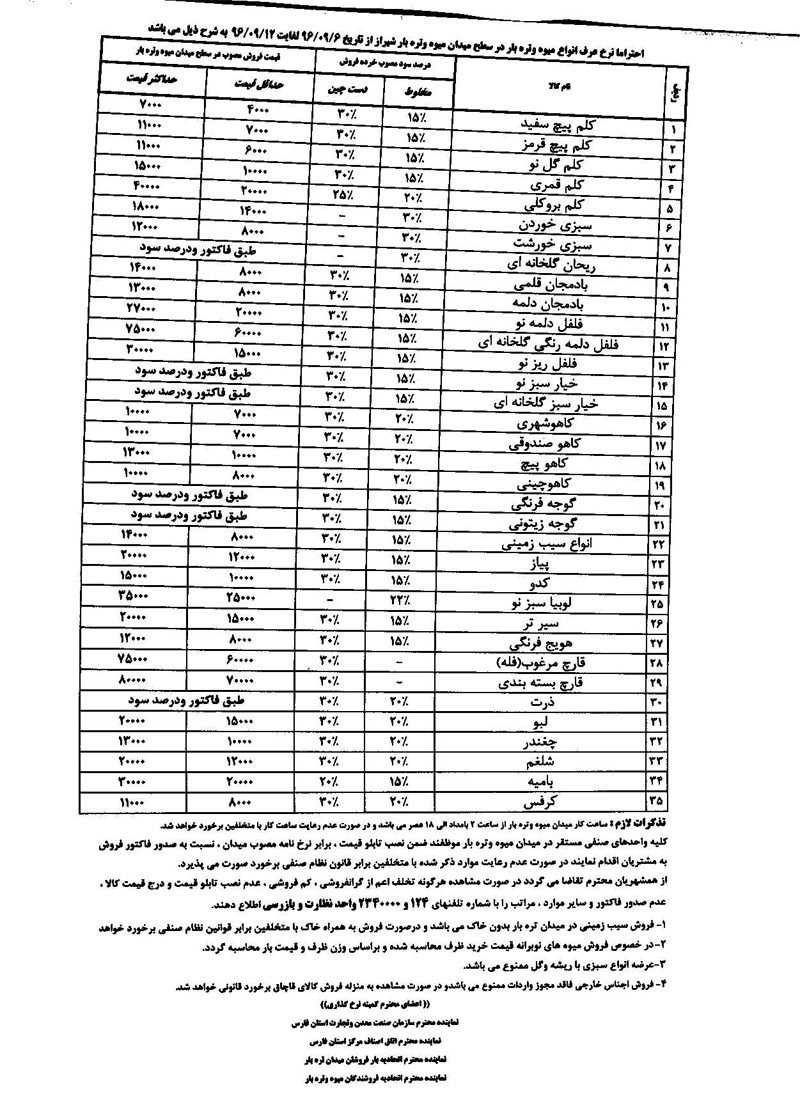 احتراما نرخ عرف انواع میوه وتره بار در سطح میدان میوه وتره بار شیراز از تاریخ ۹۶/۰۹/۶ لغایت ۹۶/۰۹/۱۲ به شرح ذیل می باشد
ردیف نام کالا درصد سود مصوب خرده فروش قیمت فروش مصوب در سطح میدان میوه وتره بار
مخلوط دست چین حداقل قیمت حداکثر قیمت
۱ کلم پیچ سفید ۱۵٪ ۳۰٪ ۴۰۰۰ ۷۰۰۰
۲ کلم پیچ قرمز ۱۵٪ ۳۰٪ ۷۰۰۰ ۱۱۰۰۰
۳ کلم گل نو ۱۵٪ ۳۰٪ ۶۰۰۰ ۱۱۰۰۰
۴ کلم قمری ۱۵٪ ۳۰٪ ۱۰۰۰۰ ۱۵۰۰۰
۵ کلم بروکلی ۲۰٪ ۲۵٪ ۲۰۰۰۰ ۴۰۰۰۰
۶ سبزی خوردن ۳۰٪ - ۱۴۰۰۰ ۱۸۰۰۰
۷ سبزی خورشت ۳۰٪ - ۸۰۰۰ ۱۲۰۰۰
۸ ریحان گلخانه ای ۳۰٪ - طبق فاکتور ودرصد سود
۹ بادمجان قلمی ۱۵٪ ۳۰٪ ۸۰۰۰ ۱۴۰۰۰
۱۰ بادمجان دلمه ۱۵٪ ۳۰٪ ۸۰۰۰ ۱۳۰۰۰
۱۱ فلفل دلمه نو ۱۵٪ ۳۰٪ ۲۰۰۰۰ ۲۷۰۰۰
۱۲ فلفل دلمه رنگی گلخانه ای ۱۵٪ ۳۰٪ ۶۰۰۰۰ ۷۵۰۰۰
۱۳ فلفل ریز نو ۱۵٪ ۳۰٪ ۱۵۰۰۰ ۳۰۰۰۰
۱۴ خیار سبز نو ۱۵٪ ۳۰٪ طبق فاکتور ودرصد سود
۱۵ خیار سبز گلخانه ای ۱۵٪ ۳۰٪ طبق فاکتور ودرصد سود
۱۶ کاهوشهری ۲۰٪ ۳۰٪ ۷۰۰۰ ۱۰۰۰۰
۱۷ کاهو صندوقی ۲۰٪ ۳۰٪ ۷۰۰۰ ۱۰۰۰۰
۱۸ کاهو پیچ ۲۰٪ ۳۰٪ ۱۰۰۰۰ ۱۳۰۰۰
۱۹ کاهوچینی ۲۰٪ ۳۰٪ ۸۰۰۰ ۱۰۰۰۰
۲۰ گوجه فرنگی ۱۵٪ ۳۰٪ طبق فاکتور ودرصد سود
۲۱ گوجه زیتونی ۱۵٪ ۳۰٪ طبق فاکتور ودرصد سود
۲۲ انواع سیب زمینی ۱۵٪ ۳۰٪ ۸۰۰۰ ۱۴۰۰۰
۲۳ پیاز ۱۵٪ ۳۰٪ ۱۲۰۰۰ ۲۰۰۰۰
۲۴ کدو ۱۵٪ ۳۰٪ ۱۰۰۰۰ ۱۵۰۰۰
۲۵ لوبیا سبز نو ۲۲٪ - ۲۵۰۰۰ ۳۵۰۰۰
۲۶ سیر تر ۱۵٪ ۳۰٪ ۱۵۰۰۰ ۲۰۰۰۰
۲۷ هویج فرنگی ۱۵٪ ۳۰٪ ۸۰۰۰ ۱۲۰۰۰
۲۸ قارچ مرغوب(فله) - ۳۰٪ ۶۰۰۰۰ ۷۵۰۰۰
۲۹ قارچ بسته بندی - ۳۰٪ ۷۰۰۰۰ ۸۰۰۰۰
۳۰ ذرت ۲۰٪ ۳۰٪ طبق فاکتور ودرصد سود
۳۱ لبو ۲۰٪ ۳۰٪ ۱۵۰۰۰ ۲۰۰۰۰
۳۲ چغندر ۲۰٪ ۳۰٪ ۱۰۰۰۰ ۱۳۰۰۰
۳۳ شلغم ۲۰٪ ۳۰٪ ۱۲۰۰۰ ۲۰۰۰۰
۳۴ بامیه ۱۵٪ ۲۰٪ ۲۰۰۰۰ ۳۰۰۰۰
۳۵ کرفس ۲۰٪ ۳۰٪ ۸۰۰۰ ۱۱۰۰۰
تذکرات لازم : ساعت کار میدان میوه وتره بار از ساعت ۲ بامداد الی ۱۸ عصر می باشد و در صورت عدم رعایت ساعت کار با متخلفین برخورد خواهد شد.
کلیه واحدهای صنفی مستقر در میدان میوه وتره بار موظفند ضمن نصب تابلو قیمت ، برابر نرخ نامه مصوب میدان ، نسبت به صدور فاکتور فروش
به مشتریان اقدام نمایند در صورت عدم رعایت موارد ذکر شده با متخلفین برابر قانون نظام صنفی برخورد صورت می پذیرد.
از همشهریان محترم تقاضا می گردد در صورت مشاهده هرگونه تخلف اعم از گرانفروشی ، کم فروشی ، عدم نصب تابلو قیمت و درج قیمت کالا ،
عدم صدور فاکتور و سایر موارد ، مراتب را با شماره تلفنهای ۱۲۴ و ۲۳۴۰۰۰۰ واحد نظارت و بازرسی اطلاع دهند.
۱- فروش سیب زمینی در میدان تره بار بدون خاک می باشد و درصورت فروش به همراه خاک با متخلفین برابر قوانین نظام صنفی برخورد خواهد
۲-در خصوص فروش میوه های نوبرانه قیمت خرید ظرف محاسبه شده و براساس وزن ظرف و قیمت بار محاسبه گردد.
۳-عرضه انواع سبزی با ریشه وگل ممنوع می باشد.
۴- فروش اجناس خارجی فاقد مجوز واردات ممنوع می باشدو در صورت مشاهده به منزله فروش کالای قاچاق برخورد قانونی خواهد شد.
(( اعضای محترم کمیته نرخ گذاری))
نماینده محترم سازمان صنعت معدن وتجارت استان فارس
نماینده محترم اتاق اصناف مرکز استان فارس
نماینده محترم اتحادیه بار فروشان میدان تره بار
نماینده محترم اتحادیه فروشندگان میوه وتره بار